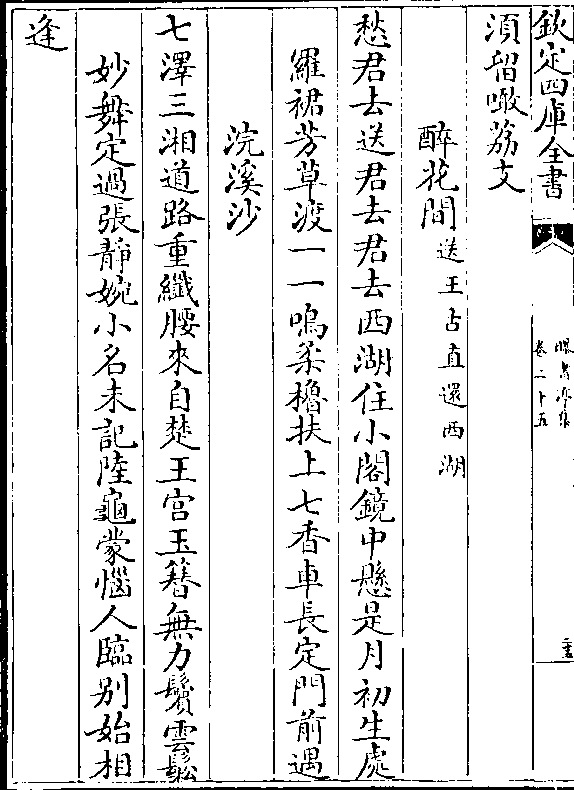 欽定四庫全書
曝書亭集
卷二十五
須留噉荔支
醉花間送王占直還西湖
愁君去送君去君去西湖住小閣鏡中懸是月初生處
羅裙芳草渡一一鳴柔櫓扶上七香車長定門前遇
浣溪沙
七澤三湘道路重纖腰來自楚王宮玉簪無力鬢雲鬆
妙舞定過張靜婉小名未記陸龜蒙惱人臨別始相
逢